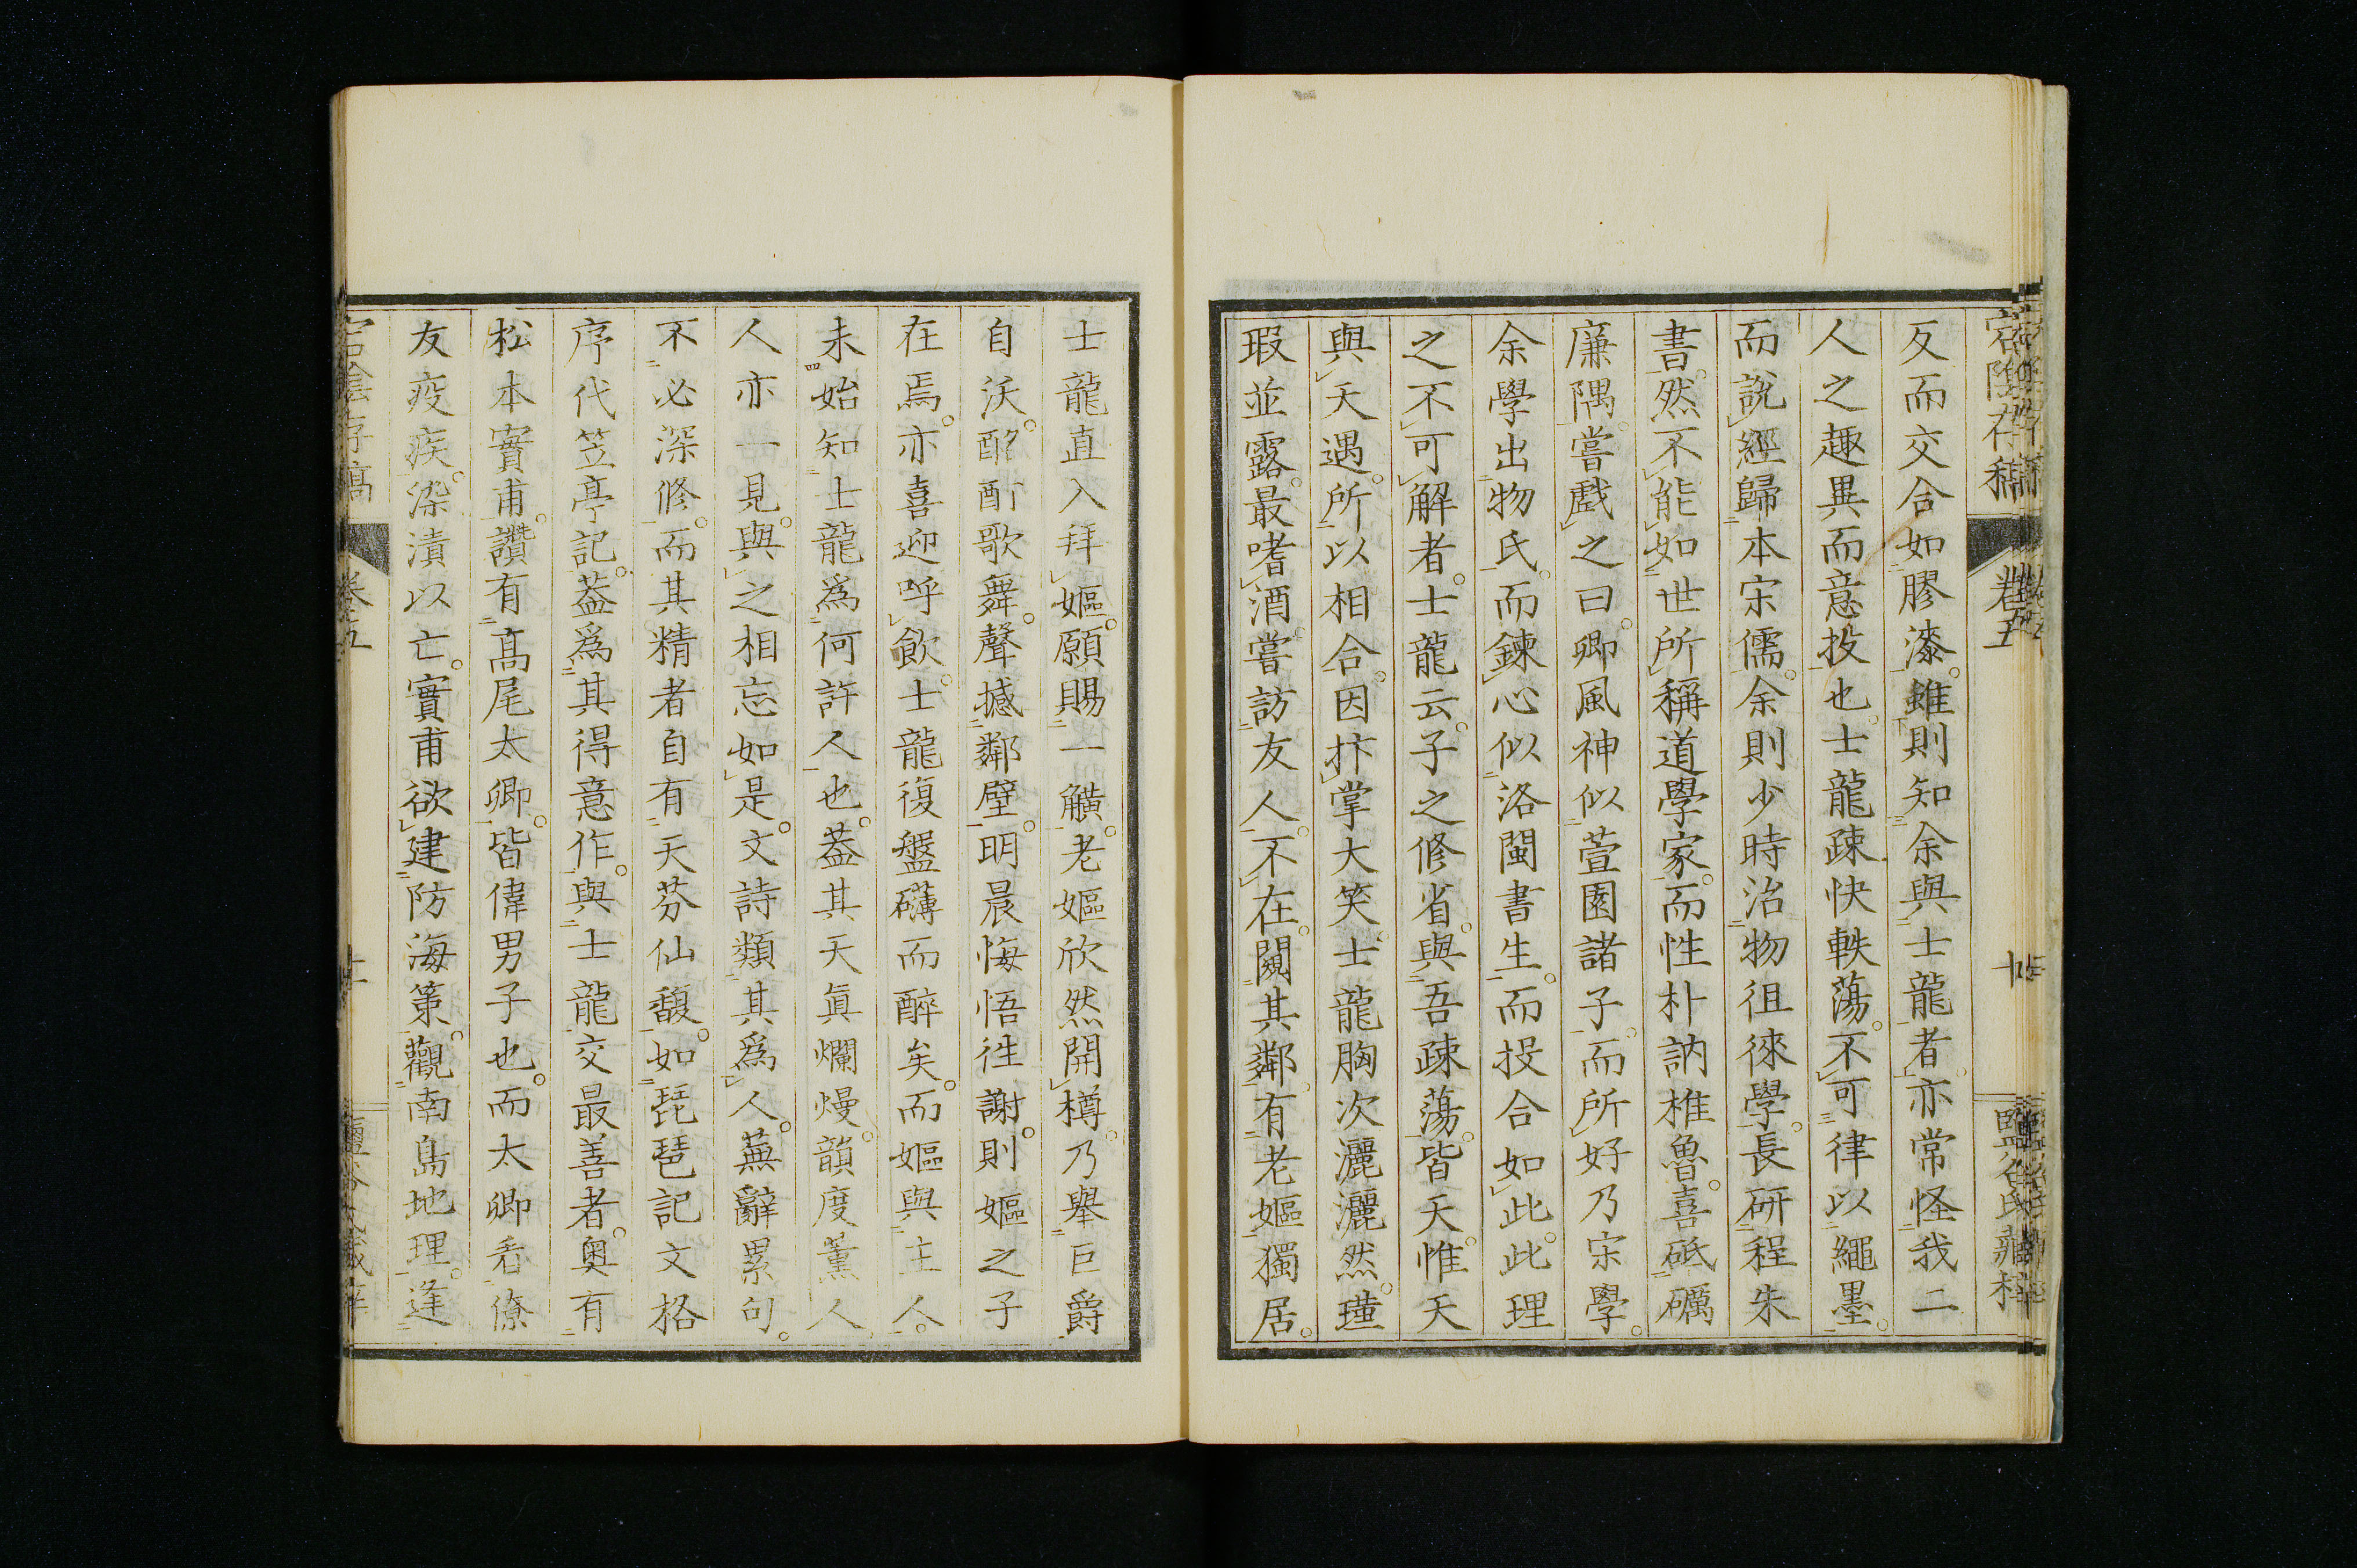 宕陰存稿　卷五
友而交合如膠漆。雖則知余與士龍者。亦常怪我二
人之趣異而意投也。士龍疎快軼蕩。不可律以繩墨。
而說經歸本宋儒。余則少時治物徂徠學。長研程朱
書。然不能如世所稱道學家。而性朴訥椎魯。喜砥礪
廉隅。嘗戲之曰。卿風神似萱園諸子。而所好乃宋學。
余學出物氏。而鍊心似洛閩書生。而投合如此。此理
之不可解者。士龍云。子之修省。與吾疎蕩。皆天。惟天
與天遇。所以相合。因抃掌大笑。士龍胸次灑灑然。瑾
瑕並露。最嗜酒。嘗訪友人。不在。闞其鄰。有老嫗獨居。
士龍直入拜嫗。願賜一觵。老嫗欣然開樽。乃舉巨爵
自沃。酩酊歌舞。聲撼鄰壁。明晨悔悟往謝。則嫗之子
在焉。亦喜迎呼飮。士龍復盤礴而醉矣。而嫗與主人。
未始知士龍爲何許人也。蓋其天眞爛熳。韻度薰人。
人亦一見。與之相忘如是。文詩類其爲人。蕪辭累句。
不必深修。而其精者自有天芬仙馥。如琵琶記文格
序代笠亭記。蓋爲其得意作。與士龍交最善者。奧有
松本實甫。讚有髙尾太卿。皆偉男子也。而太卿看僚
友疫疾。染漬以亡。實甫欲建防海策。觀南島地理。逢
宕陰存稿　卷五